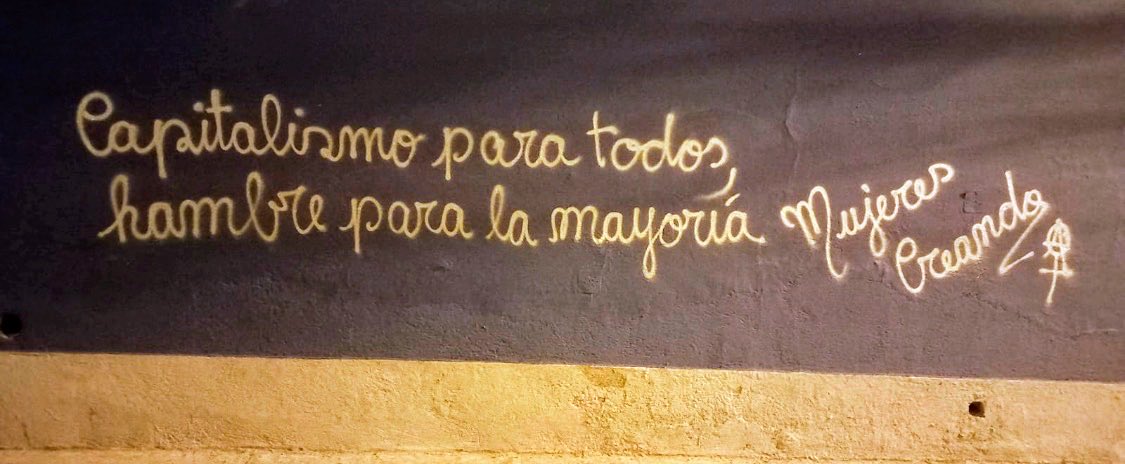 Capitalismo para todos,
hambre para la mayoría
Mujeres
Creando